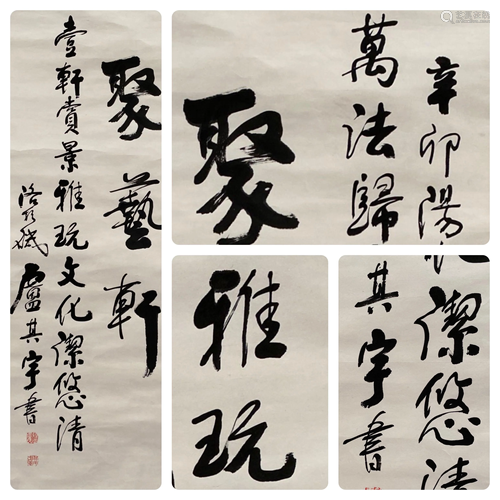 聚藝軒
壹軒賞景雅玩文化潔悠清
盧其宇書
聚
萬法歸
辛卯陽
雅玩
其宇書
潔悠清